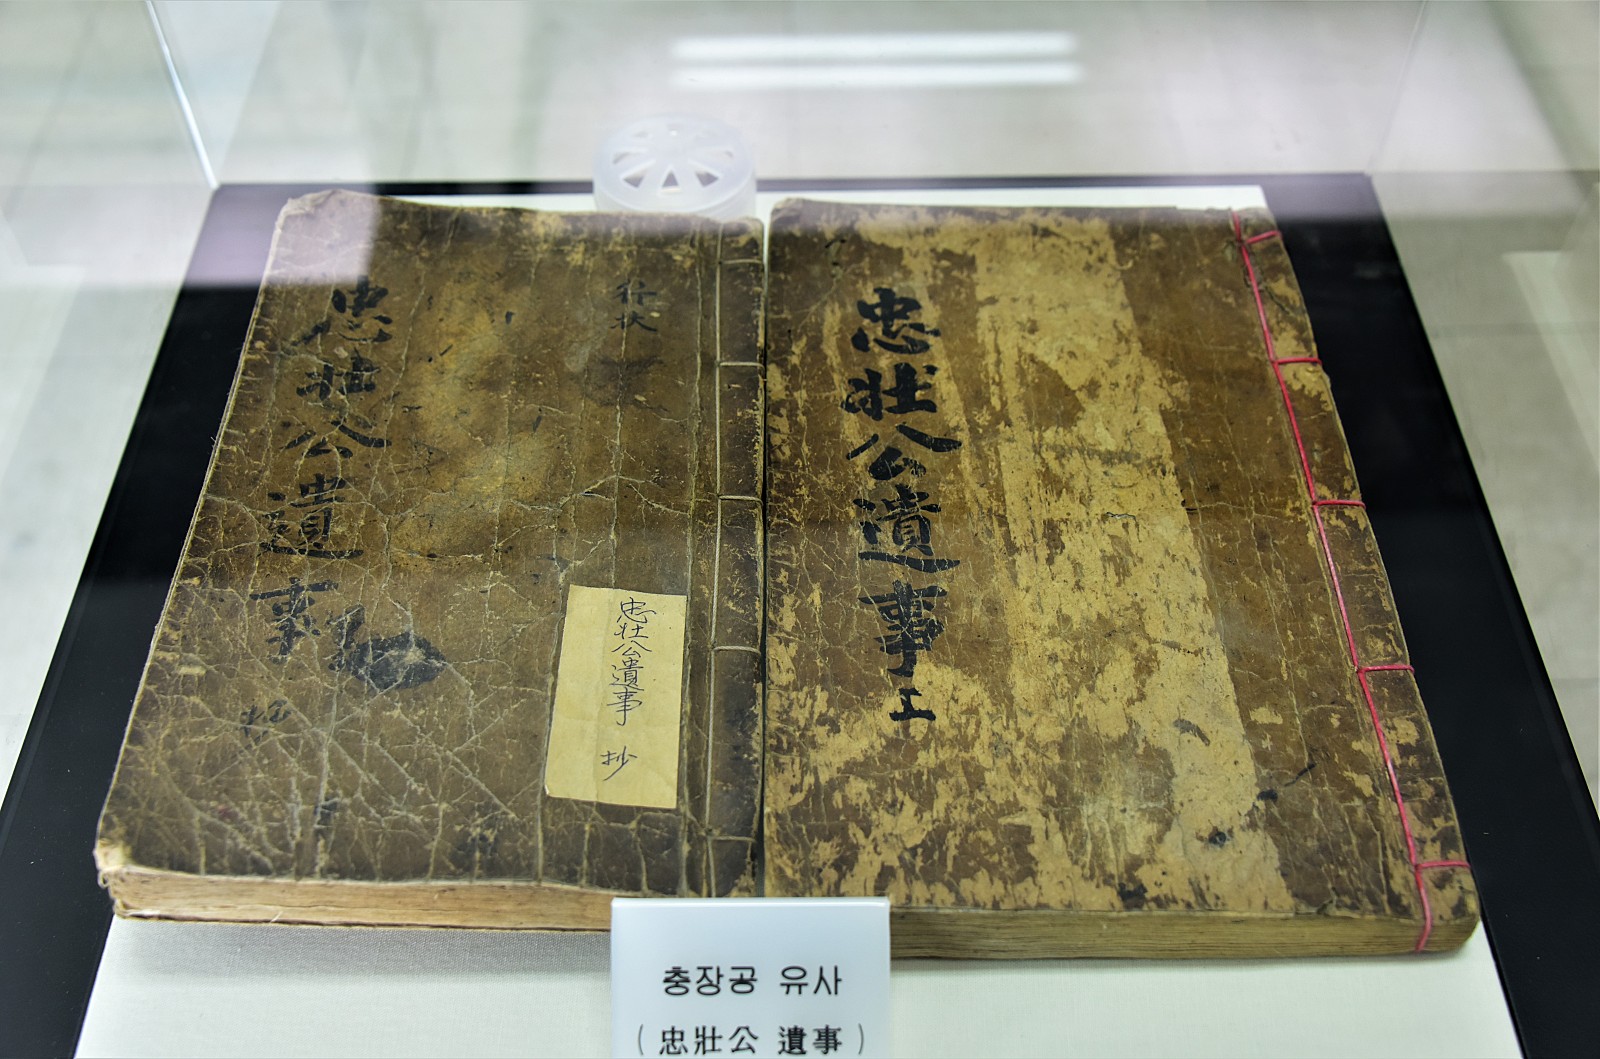 忠壯公遺事
上
忠壯公遺事
行狀
抄
忠壯公遺事 抄
충장공 유사
(忠壯公 遺事)